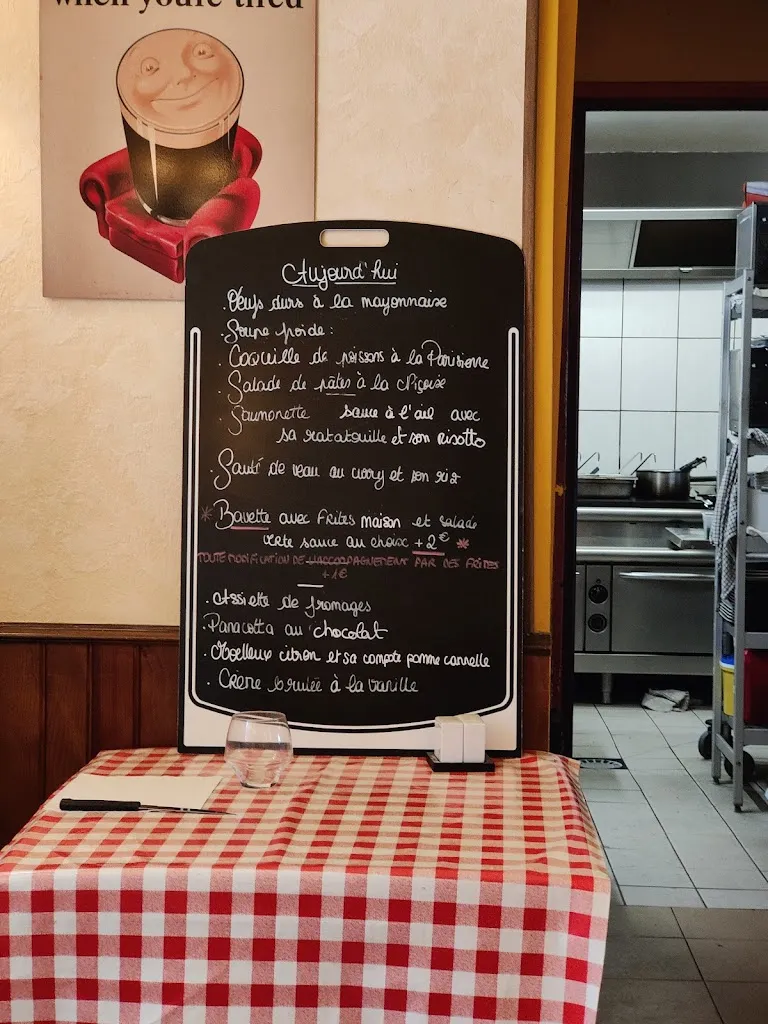 when you're tired
Aujourd'hui
. Oeufs durs à la mayonnaise
. Soupe froide :
. Coquille de poissons à la Parisienne
. Salade de pâtes à la Niçoise
. Saumonette sauce à l'ail avec
sa ratatouille et son risotto
. Sauté de veau au curry et son riz
* Bavette avec frites maison et salade
verte sauce au choix +2€ *
TOUTE MODIFICATION DE L'ACCOMPAGNEMENT PAR DES FRITES
+1€
. Assiette de fromages
. Panacotta au chocolat
. Moelleux citron et sa compote pomme cannelle
. Crème brulée à la vanille